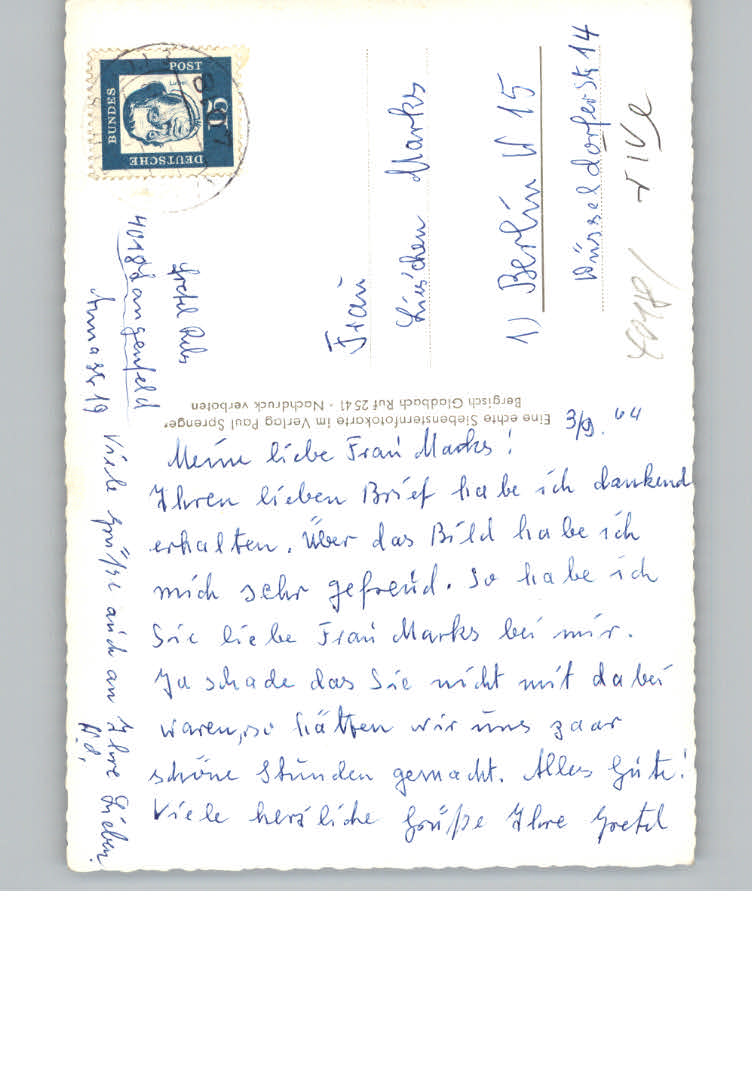 DEUTSCHE
BUNDES
POST
15
Gretel
4018 Langenfeld
Annastr 19
Frau
Lieschen Marks
1) Berlin W 15
Düsseldorferstr 14
4018/
Eine echte Siebensternfotokarte im Verlag Paul Sprenger
Bergisch Gladbach Ruf 2541 - Nachdruck verboten
3/9. 64
Meine liebe Frau Marks!
Ihren lieben Brief habe ich dankend
erhalten. Über das Bild habe ich
mich sehr gefreud. So habe ich
Sie liebe Frau Marks bei mir.
Ja schade das Sie nicht mit dabei
waren, so hätten wir uns paar
schöne Stunden gemacht. Alles Gute!
Viele herzliche Grüße Ihre Gretel
Viele Grüße auch an Ihre Lieben.